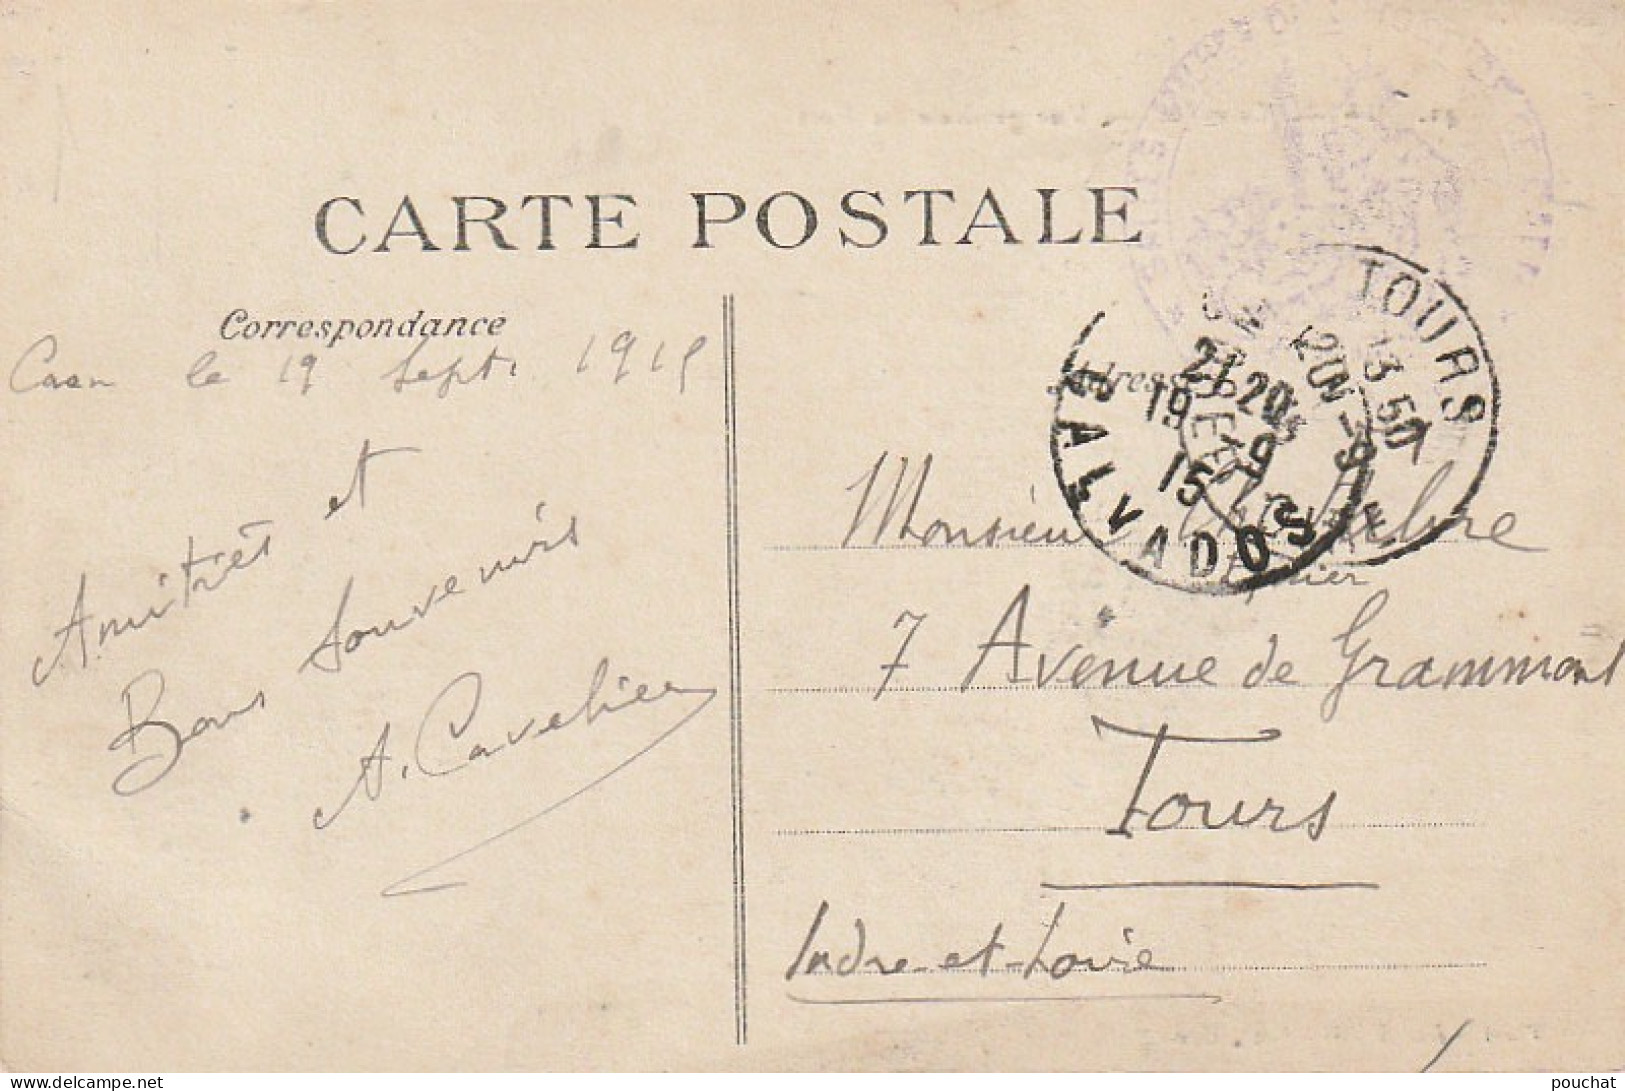 CARTE POSTALE
Correspondance
Caen le 19 Sept. 1915
Amitiés et
Bons Souvenirs
A. Cavelier
Adresse
Monsieur
7 Avenue de Grammont
Tours
Indre-et-Loire
TOURS
13 50
20 - 9
INDRE ET LOIRE
21 20
19 - 9
15
CALVADOS
www.delcampe.net
pouchat